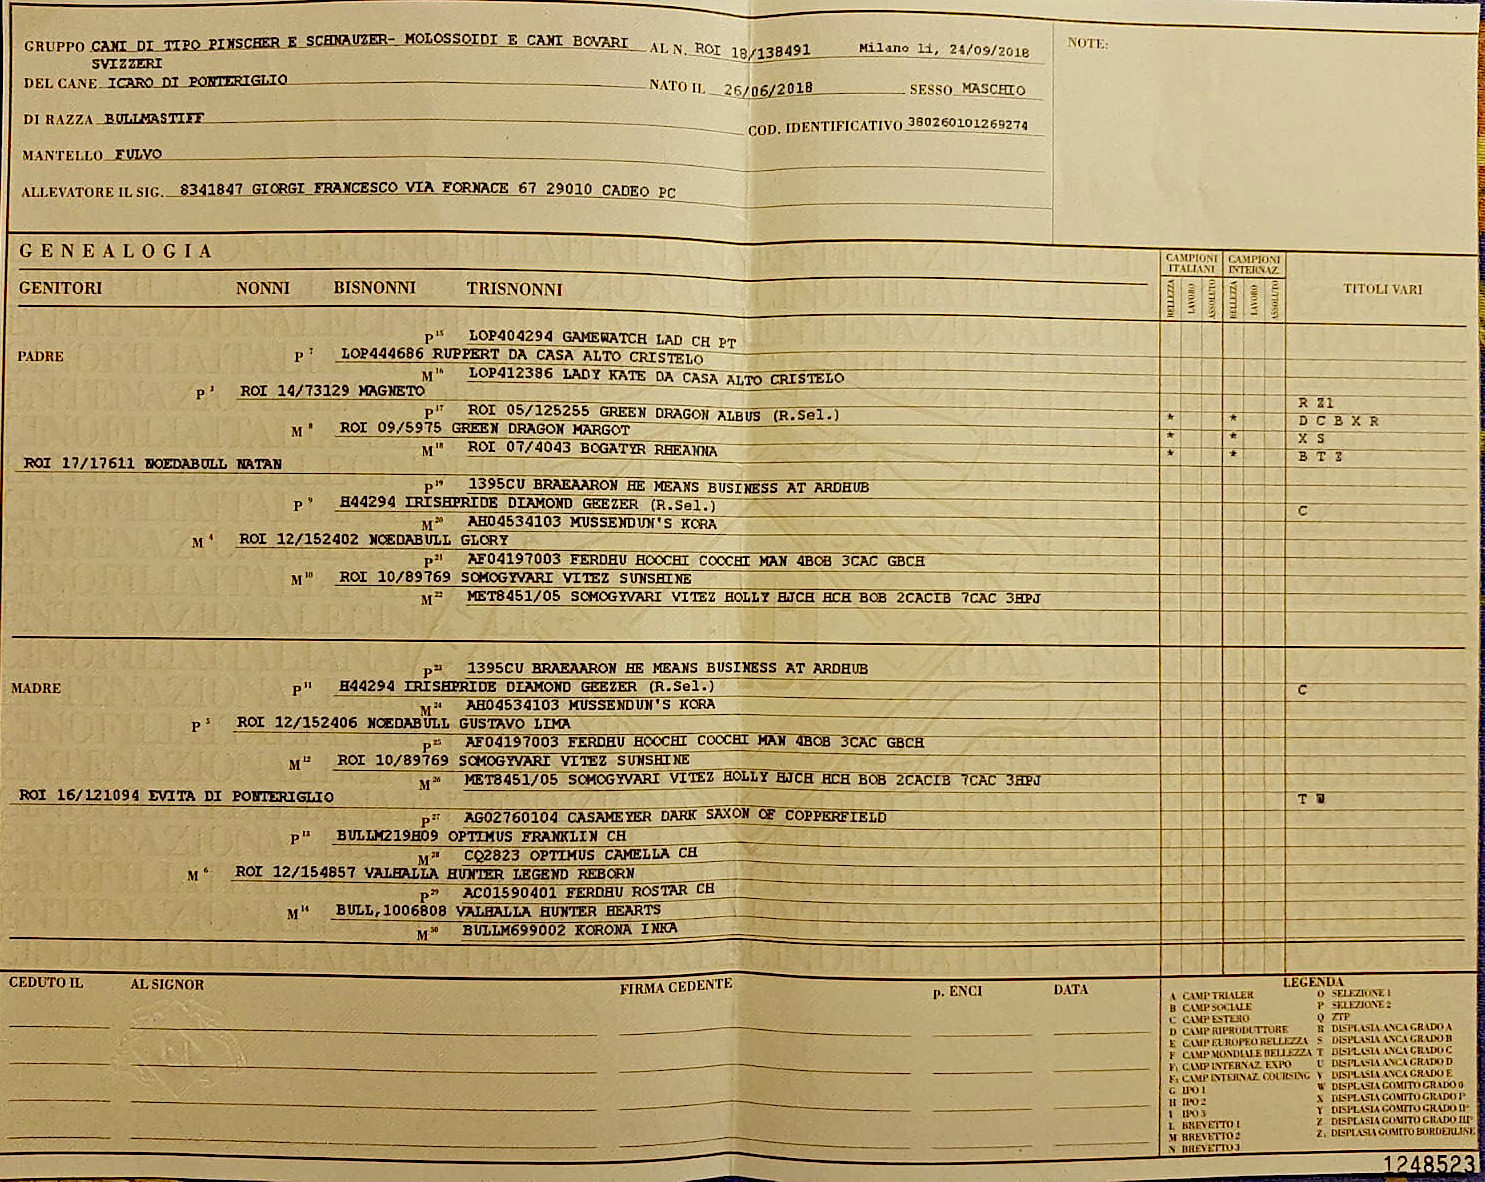 GRUPPO CANI DI TIPO PINSCHER E SCHNAUZER- MOLOSSOIDI E CANI BOVARI AL N. ROI 18/138491 Milano li, 24/09/2018 NOTE:
SVIZZERI
DEL CANE ICARO DI PONTERIGLIO NATO IL 26/06/2018 SESSO MASCHIO
DI RAZZA BULLMASTIFF COD. IDENTIFICATIVO 380260101269274
MANTELLO FULVO
ALLEVATORE IL SIG. 8341847 GIORGI FRANCESCO VIA FORNACE 67 29010 CADEO PC
GENEALOGIA
CAMPIONI ITALIANI CAMPIONI INTERNAZ.
GENITORI NONNI BISNONNI TRISNONNI BELLEZZA LAVORO ASSOLUTO BELLEZZA LAVORO ASSOLUTO TITOLI VARI
P 15 LOP404294 GAMEWATCH LAD CH PT
PADRE P 7 LOP444686 RUPPERT DA CASA ALTO CRISTELO
M 16 LOP412386 LADY KATE DA CASA ALTO CRISTELO
P 3 ROI 14/73129 MAGNETO R Z1
P 17 ROI 05/125255 GREEN DRAGON ALBUS (R.Sel.) * * D C B X R
M 8 ROI 09/5975 GREEN DRAGON MARGOT * * X S
M 18 ROI 07/4043 BOGATYR RHEANNA * * B T Z
ROI 17/17611 NOEDABULL NATAN
P 19 1395CU BRAEAARON HE MEANS BUSINESS AT ARDHUB
P 9 H44294 IRISHPRIDE DIAMOND GEEZER (R.Sel.) C
M 20 AH04534103 MUSSENDUN'S KORA
M 4 ROI 12/152402 NOEDABULL GLORY
P 21 AF04197003 FERDHU HOOCHI COOCHI MAN 4BOB 3CAC GBCH
M 10 ROI 10/89769 SOMOGYVARI VITEZ SUNSHINE
M 22 MET8451/05 SOMOGYVARI VITEZ HOLLY HJCH HCH BOB 2CACIB 7CAC 3HPJ
P 23 1395CU BRAEAARON HE MEANS BUSINESS AT ARDHUB
MADRE P 11 H44294 IRISHPRIDE DIAMOND GEEZER (R.Sel.) C
M 24 AH04534103 MUSSENDUN'S KORA
P 5 ROI 12/152406 NOEDABULL GUSTAVO LIMA
P 25 AF04197003 FERDHU HOOCHI COOCHI MAN 4BOB 3CAC GBCH
M 12 ROI 10/89769 SOMOGYVARI VITEZ SUNSHINE
M 26 MET8451/05 SOMOGYVARI VITEZ HOLLY HJCH HCH BOB 2CACIB 7CAC 3HPJ
ROI 16/121094 EVITA DI PONTERIGLIO T W
P 27 AG02760104 CASAMEYER DARK SAXON OF COPPERFIELD
P 13 BULLM219H09 OPTIMUS FRANKLIN CH
M 28 CQ2823 OPTIMUS CAMELLA CH
M 6 ROI 12/154857 VALHALLA HUNTER LEGEND REBORN
P 29 AC01590401 FERDHU ROSTAR CH
M 14 BULL,1006808 VALHALLA HUNTER HEARTS
M 30 BULLM699002 KORONA INKA
CEDUTO IL AL SIGNOR FIRMA CEDENTE p. ENCI DATA
LEGENDA
A CAMP TRIALER O SELEZIONE 1
B CAMP SOCIALE P SELEZIONE 2
C CAMP ESTERO Q ZTP
D CAMP RIPRODUTTORE R DISPLASIA ANCA GRADO A
E CAMP EUROPEO BELLEZZA S DISPLASIA ANCA GRADO B
F CAMP MONDIALE BELLEZZA T DISPLASIA ANCA GRADO C
F1 CAMP INTERNAZ. EXPO U DISPLASIA ANCA GRADO D
F2 CAMP INTERNAZ. COURSING V DISPLASIA ANCA GRADO E
G IPO 1 W DISPLASIA GOMITO GRADO 0
H IPO 2 X DISPLASIA GOMITO GRADO I°
I IPO 3 Y DISPLASIA GOMITO GRADO II°
L BREVETTO 1 Z DISPLASIA GOMITO GRADO III°
M BREVETTO 2 Z1 DISPLASIA GOMITO BORDERLINE
N BREVETTO 3
1248523